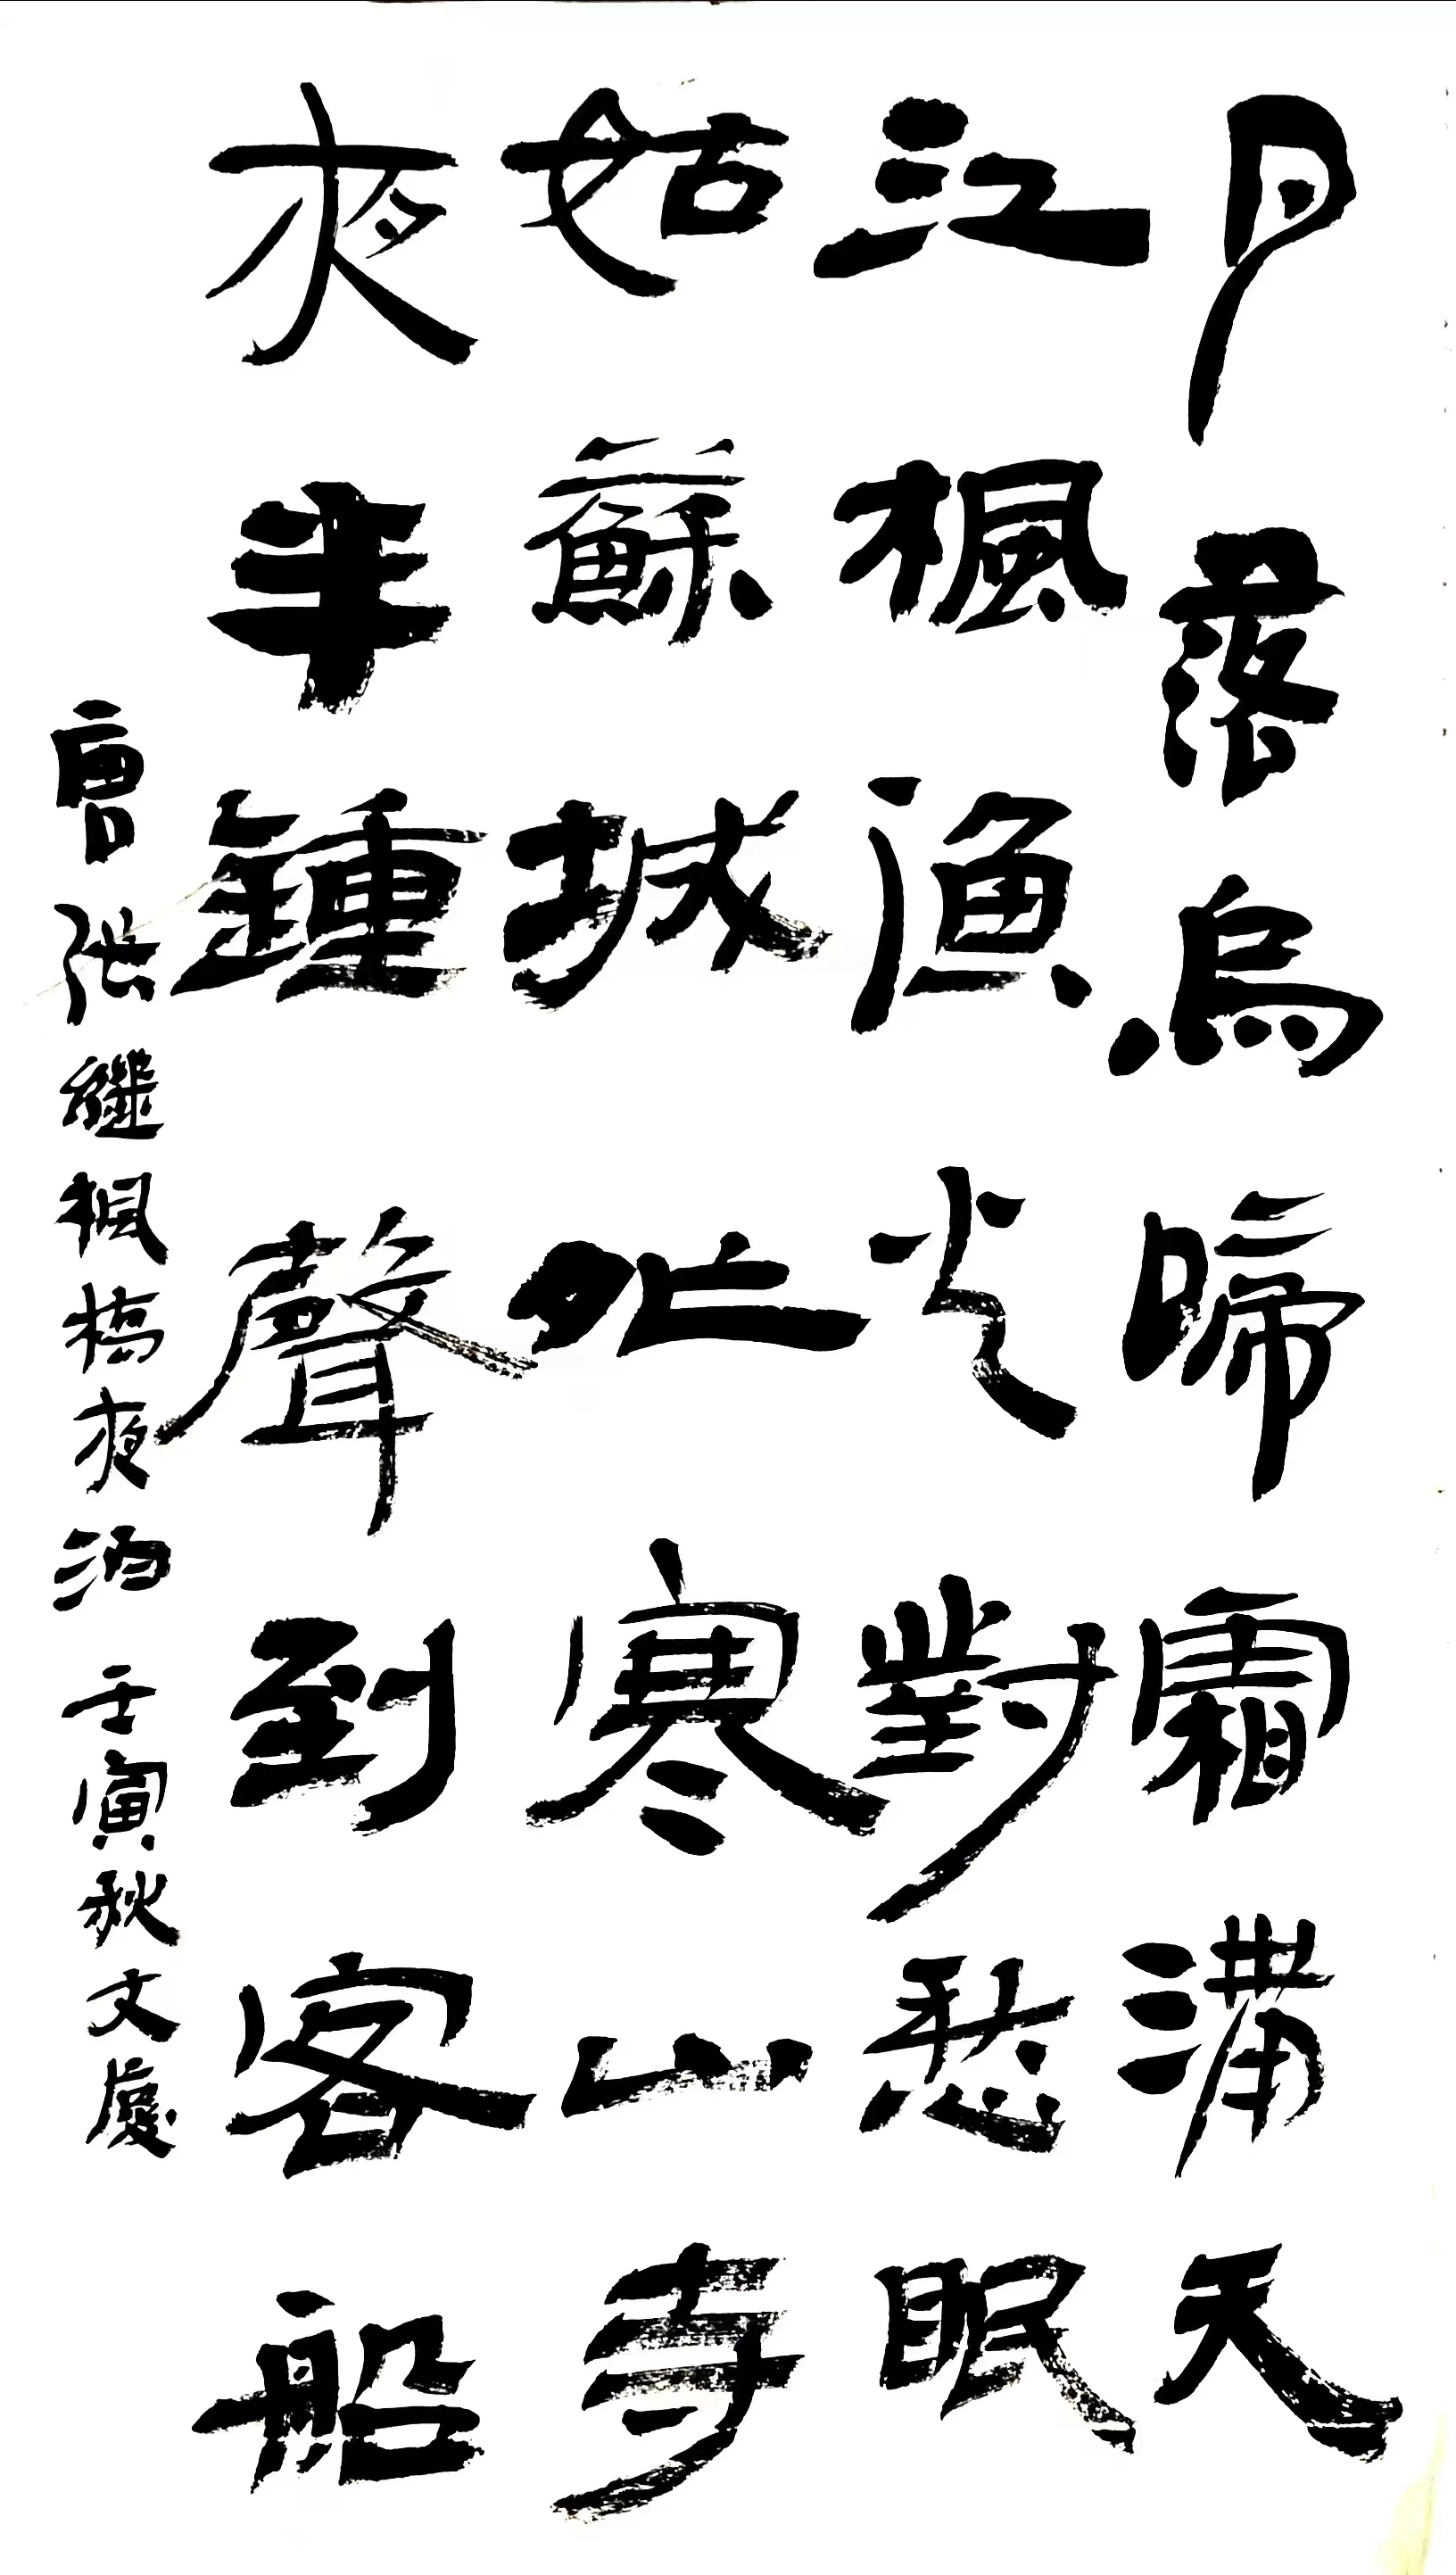 月落烏啼霜滿天
江楓漁火對愁眠
姑蘇城外寒山寺
夜半鍾聲到客船
唐張繼楓橋夜泊 壬寅秋文慶